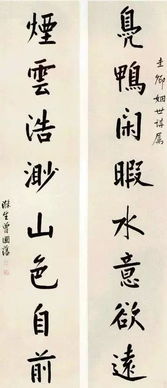 圭卿姻世講屬
鳧鴨閑暇水意欲遠
煙雲浩渺山色自前
滌生曾國藩